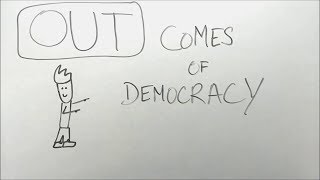 OUT COMES
OF
DEMOCRACY